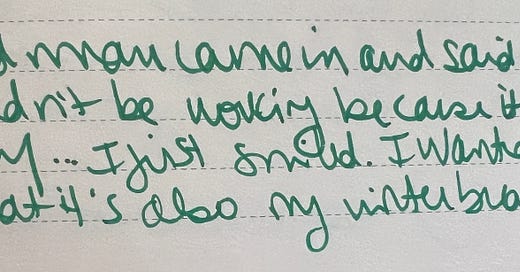 d man came in and said
dn't be working because it
y... I just smiled. I wante
at it's also my winter brea